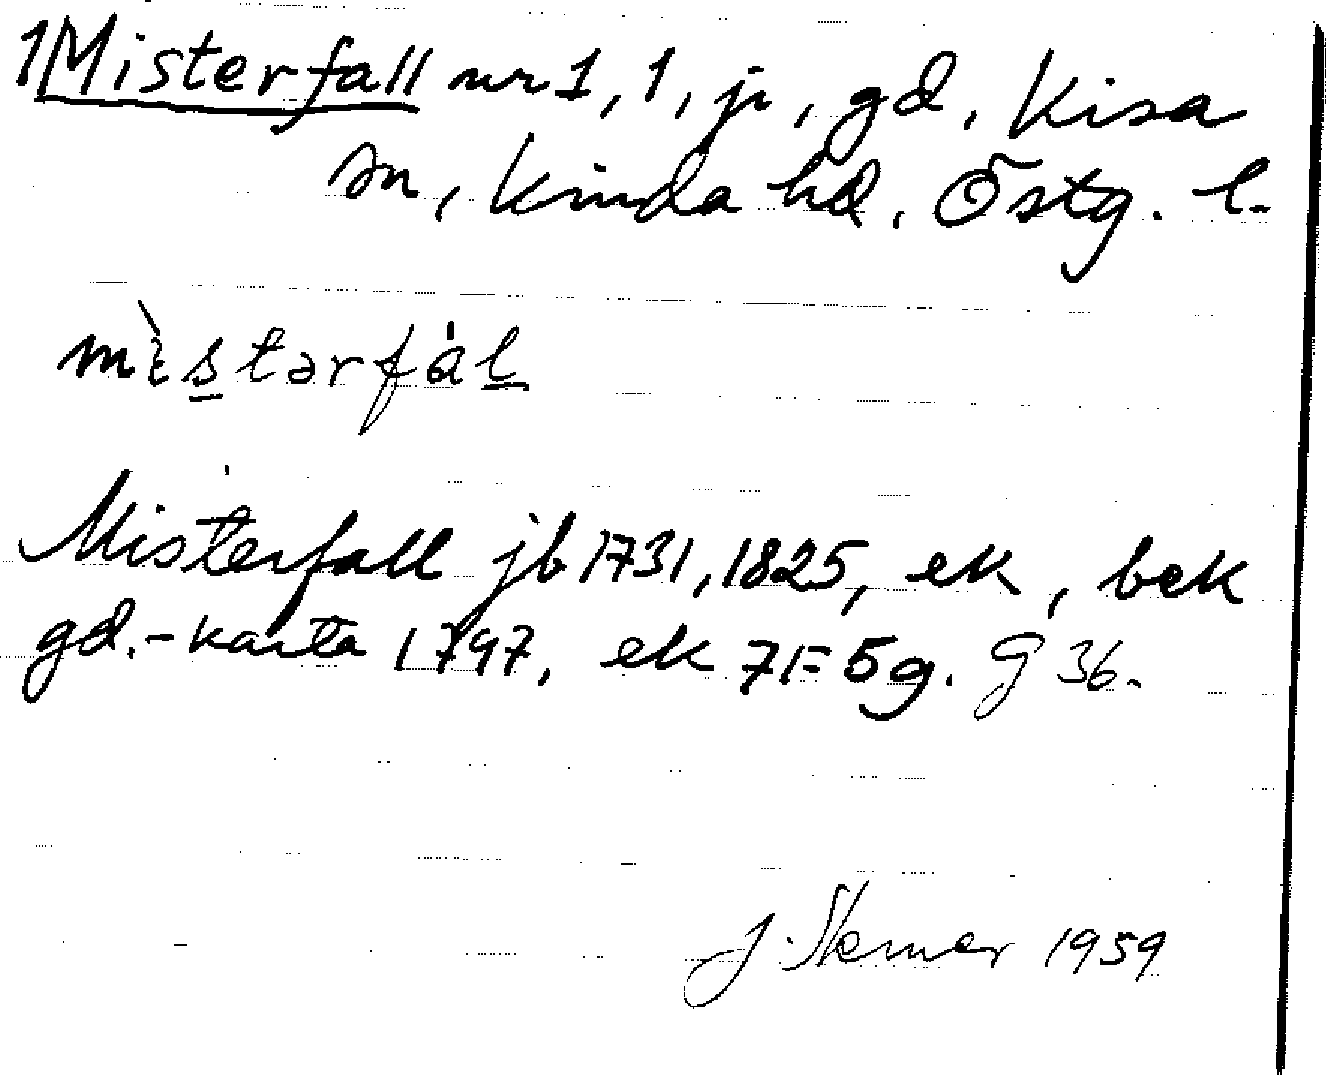 1 Misterfall nr 1, 1, jr, gd, Kisa
sn, Kinda hd, Östg. l.
mìstərfál
Misterfall jb 1731, 1825, ek, bek
gd.-karta 1797, ek 7F 5g. G 36.
J. 1959